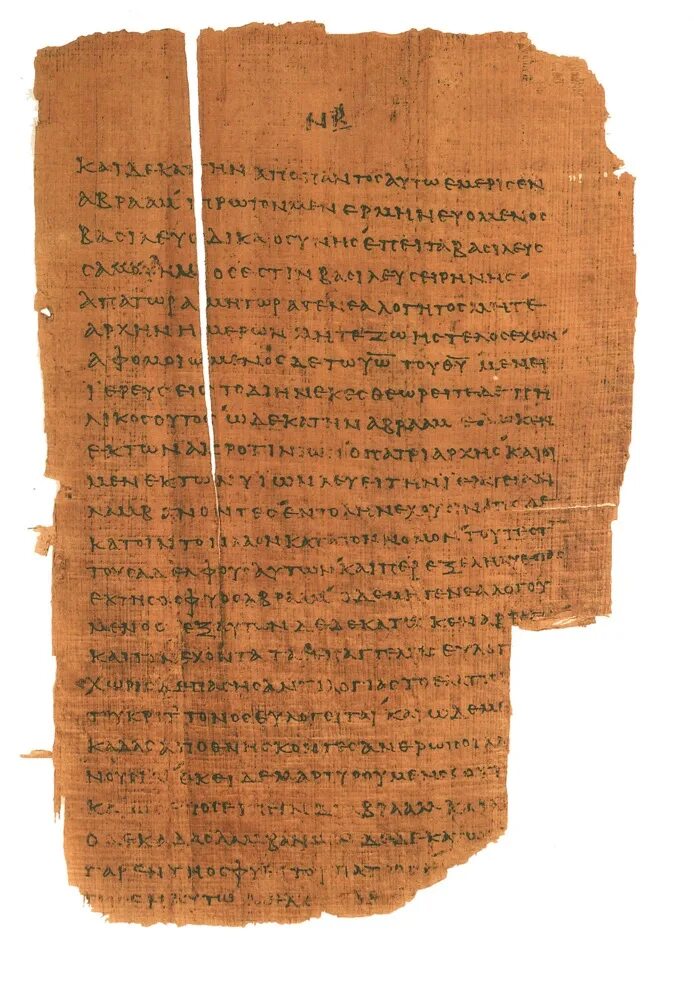 ΝΒ
ΚΑΙΔΕΚΑΤΗΝ ΑΠΟΠΑΝΤΟΣΑΥΤΩΕΜΕΡΙΣΕΝ
ΑΒΡΑΑΜ ΠΡΩΤΟΝΜΕΝΕΡΜΗΝΕΥΟΜΕΝΟΣ
ΒΑΣΙΛΕΥΣΔΙΚΑΙΟΣΥΝΗΣΕΠΕΙΤΑΒΑΣΙΛΕΥΣ
ΣΑΛΗΜΟΕΣΤΙΝΒΑΣΙΛΕΥΣΕΙΡΗΝΗΣ
ΑΠΑΤΩΡΑΜΗΤΩΡΑΓΕΝΕΑΛΟΓΗΤΟΣΜΗΤΕ
ΑΡΧΗΝΗΜΕΡΩΝΜΗΤΕΖΩΗΣΤΕΛΟΣΕΧΩΝ
ΑΦΟΜΟΙΩΜΕΝΟΣΔΕΤΩΥΩ ΤΟΥΘΥ ΜΕΝΕΙ
ΙΕΡΕΥΣΕΙΣΤΟΔΙΗΝΕΚΕΣΘΕΩΡΕΙΤΕΔΕΠΗ
ΛΙΚΟΣΟΥΤΟΣΩΔΕΚΑΤΗΝΑΒΡΑΑΜ ΕΔΩΚΕΝ
ΕΚΤΩΝΑΚΡΟΤΙΝΙΩΝΟΠΑΤΡΙΑΡΧΗΣΚΑΙΟΙ
ΜΕΝΕΚΤΩΝΥΙΩΝΛΕΥΕΙΤΗΝΙΕΡΑΤΕΙΑΝ
ΛΑΜΒΑΝΟΝΤΕΣΕΝΤΟΛΗΝΕΧΟΥΣΙΝΑΠΟΔΕ
ΚΑΤΟΙΝΤΟΝΛΑΟΝΚΑΤΑΤΟΝΝΟΜΟΝΤΟΥΤΕΣΤ
ΤΟΥΣΑΔΕΛΦΟΥΣΑΥΤΩΝΚΑΙΠΕΡΕΞΕΛΗΛΥΘΟΤΑΣ
ΕΚΤΗΣΟΣΦΥΟΣΑΒΡΑΑΜ ΟΔΕΜΗΓΕΝΕΑΛΟΓΟΥ
ΜΕΝΟΣ ΕΞΑΥΤΩΝΔΕΔΕΚΑΤΩΚΕΝΑΒΡΑ
ΚΑΙΤΟΝΕΧΟΝΤΑΤΑΣΕΠΑΓΓΕΛΙΑΣΕΥΛΟΓ
ΧΩΡΙΣΔΕΠΑΣΗΣΑΝΤΙΛΟΓΙΑΣΤΟΕΛΑΤ
ΤΟΥΚΡΙΤΤΟΝΟΣΕΥΛΟΓΕΙΤΑΙ ΚΑΙΩΔΕΜΕ
ΚΑΔΑΣΑΠΟΘΝΗΣΚΟΝΤΕΣΑΝΘΡΩΠΟΙΛΑ
ΝΟΥΣΙΝΕΚΕΙΔΕΜΑΡΤΥΡΟΥΜΕΝΟΣΟΤΙ
ΕΙΠΕΙΝΔΙ ΑΒΡΑΑΜ ΚΑΙ
Ο ΔΕΚΑΔΑΣΛΑΜΒΑΝΩΝΔΕΔΕΚΑΤΩ
ΓΑΡΕΝΤΗΟΣΦΥΕΙΤΟΥΠΑΤ